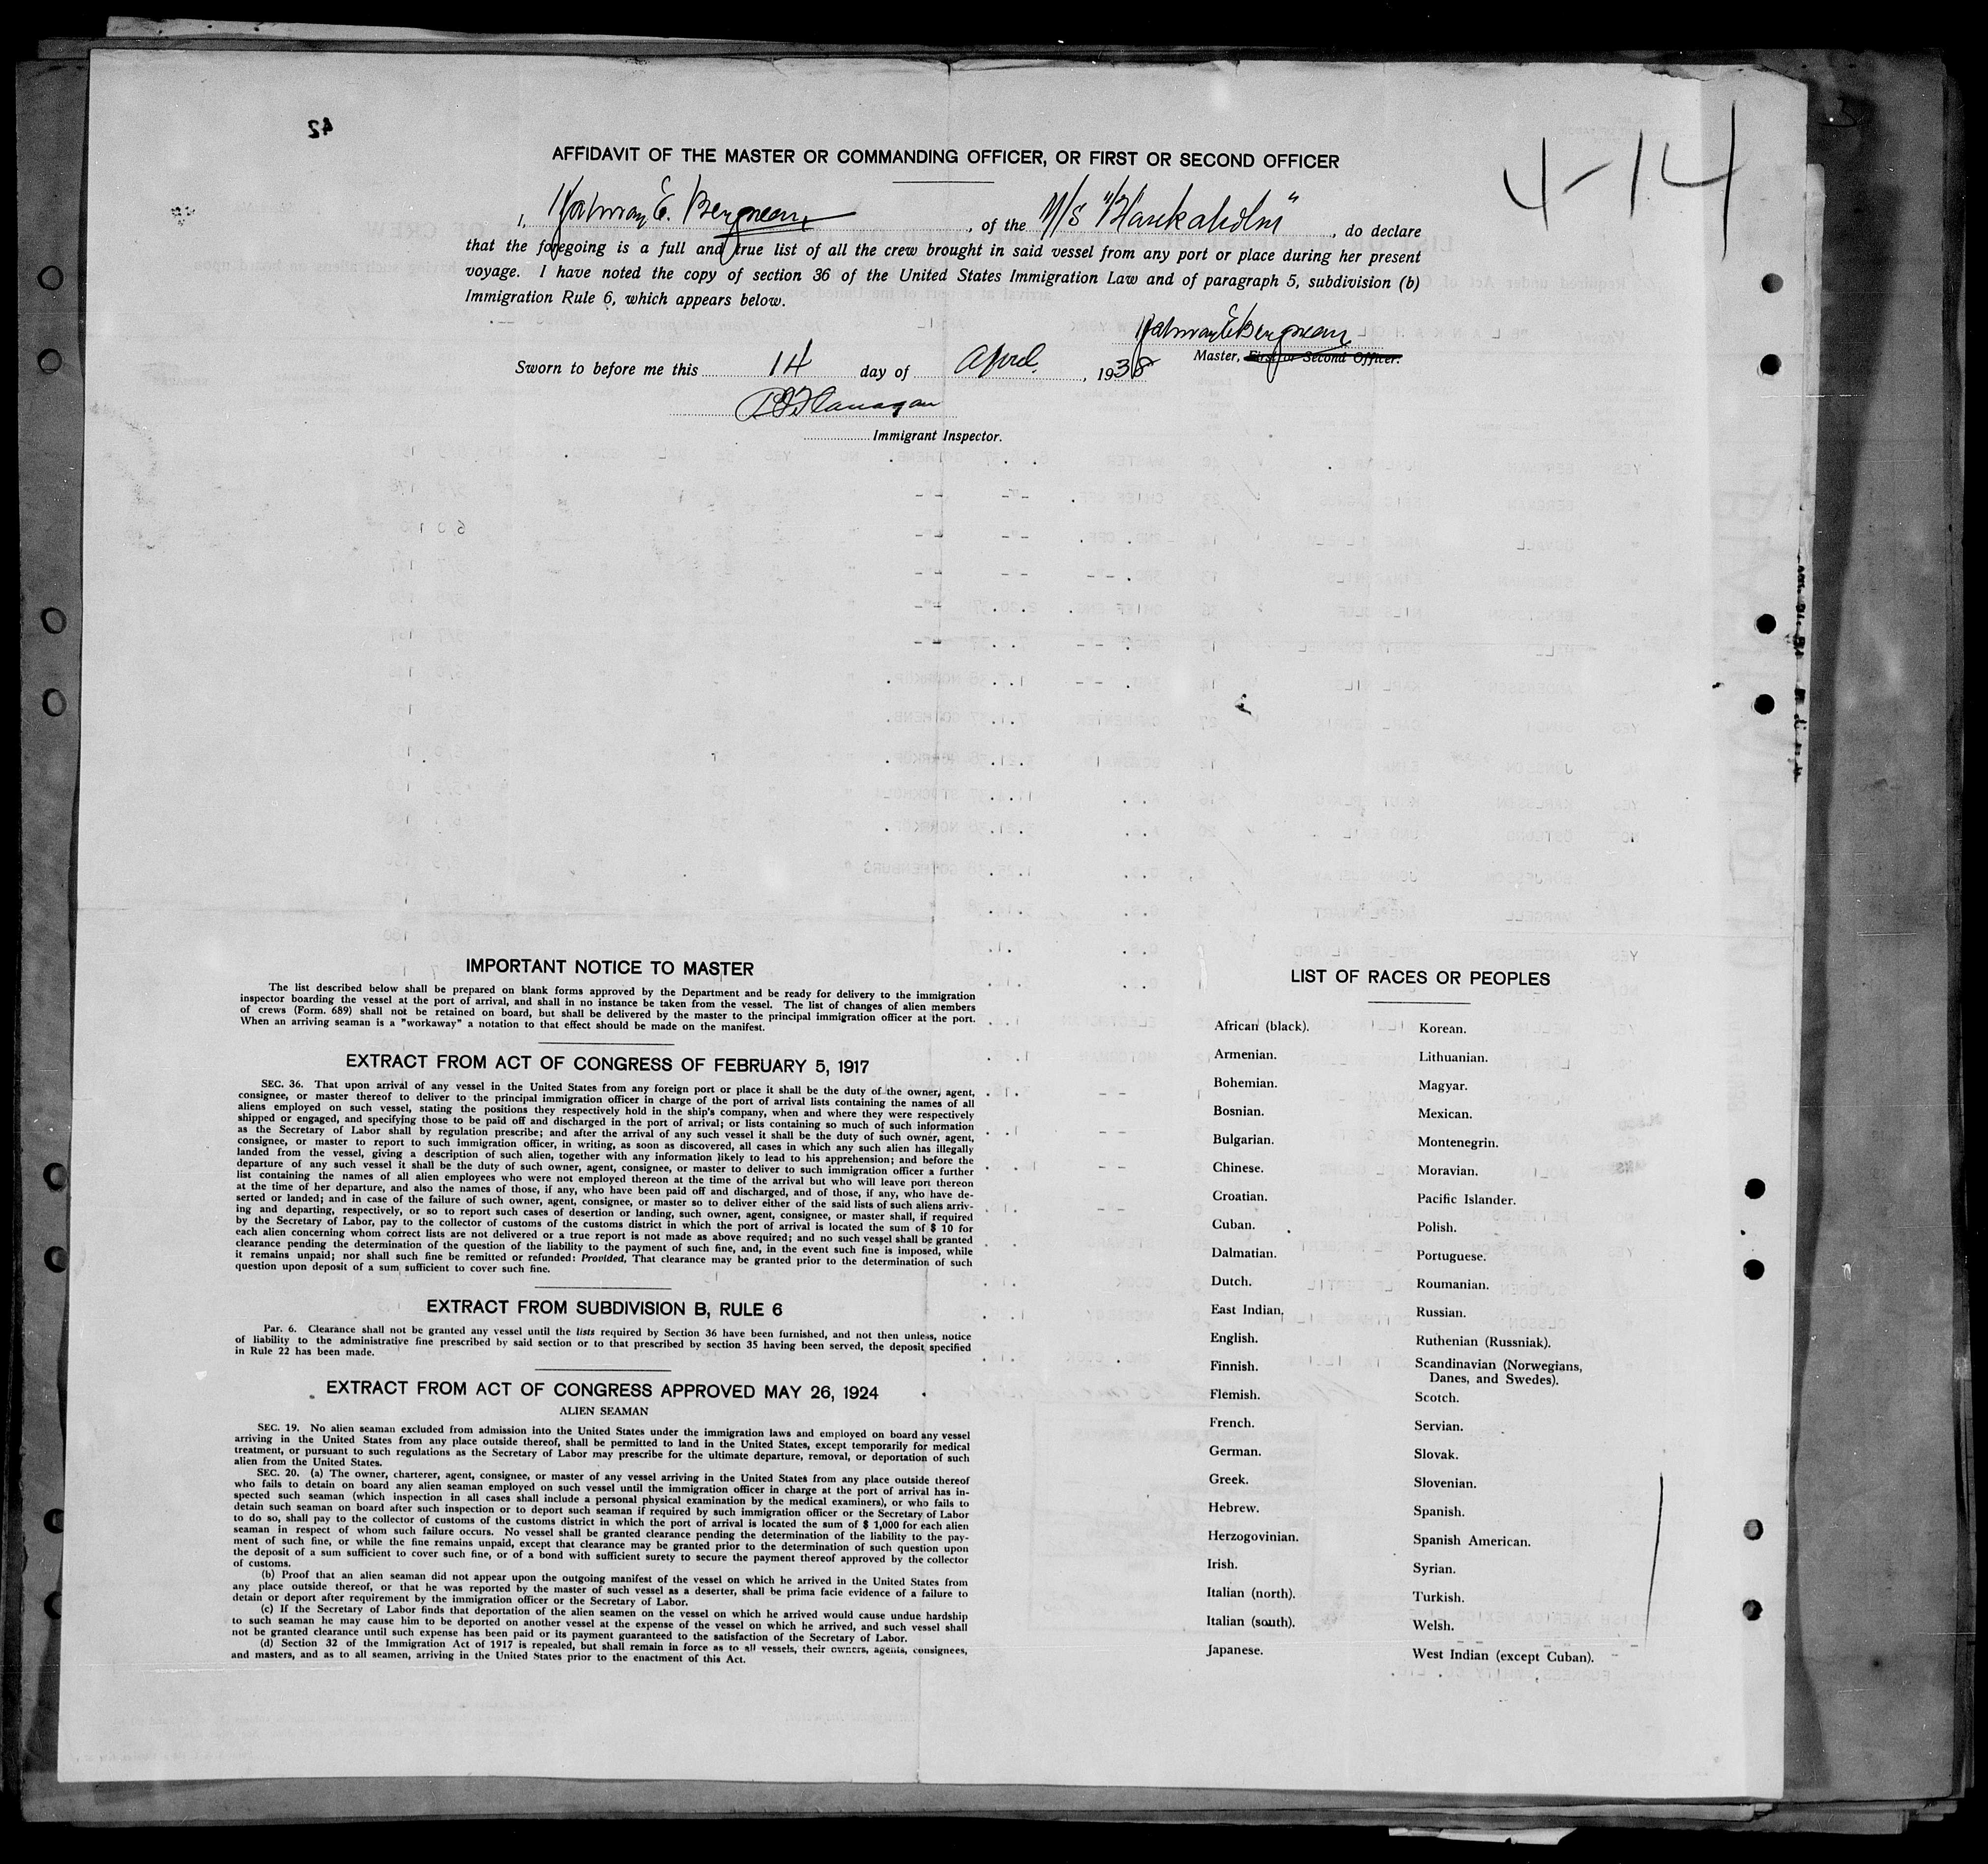 42
4-14
AFFIDAVIT OF THE MASTER OR COMMANDING OFFICER, OR FIRST OR SECOND OFFICER
I, Hjalmar E. Bergman, of the M/S "Blankaholm", do declare
that the foregoing is a full and true list of all the crew brought in said vessel from any port or place during her present
voyage. I have noted the copy of section 36 of the United States Immigration Law and of paragraph 5, subdivision (b)
Immigration Rule 6, which appears below.
Hjalmar E Bergman
Master, First or Second Officer.
Sworn to before me this 14 day of April, 1938
Flanagan
Immigrant Inspector.
IMPORTANT NOTICE TO MASTER
The list described below shall be prepared on blank forms approved by the Department and be ready for delivery to the immigration
inspector boarding the vessel at the port of arrival, and shall in no instance be taken from the vessel. The list of changes of alien members
of crews (Form. 689) shall not be retained on board, but shall be delivered by the master to the principal immigration officer at the port.
When an arriving seaman is a "workaway" a notation to that effect should be made on the manifest.
EXTRACT FROM ACT OF CONGRESS OF FEBRUARY 5, 1917
SEC. 36. That upon arrival of any vessel in the United States from any foreign port or place it shall be the duty of the owner, agent,
consignee, or master thereof to deliver to the principal immigration officer in charge of the port of arrival lists containing the names of all
aliens employed on such vessel, stating the positions they respectively hold in the ship's company, when and where they were respectively
shipped or engaged, and specifying those to be paid off and discharged in the port of arrival; or lists containing so much of such information
as the Secretary of Labor shall by regulation prescribe; and after the arrival of any such vessel it shall be the duty of such owner, agent,
consignee, or master to report to such immigration officer, in writing, as soon as discovered, all cases in which any such alien has illegally
landed from the vessel, giving a description of such alien, together with any information likely to lead to his apprehension; and before the
departure of any such vessel it shall be the duty of such owner, agent, consignee, or master to deliver to such immigration officer a further
list containing the names of all alien employees who were not employed thereon at the time of the arrival but who will leave port thereon
at the time of her departure, and also the names of those, if any, who have been paid off and discharged, and of those, if any, who have de-
serted or landed; and in case of the failure of such owner, agent, consignee, or master so to deliver either of the said lists of such aliens arriv-
ing and departing, respectively, or so to report such cases of desertion or landing, such owner, agent, consignee, or master shall, if required
by the Secretary of Labor, pay to the collector of customs of the customs district in which the port of arrival is located the sum of $ 10 for
each alien concerning whom correct lists are not delivered or a true report is not made as above required; and no such vessel shall be granted
clearance pending the determination of the question of the liability to the payment of such fine, and, in the event such fine is imposed, while
it remains unpaid; nor shall such fine be remitted or refunded: Provided, That clearance may be granted prior to the determination of such
question upon deposit of a sum sufficient to cover such fine.
EXTRACT FROM SUBDIVISION B, RULE 6
Par. 6. Clearance shall not be granted any vessel until the lists required by Section 36 have been furnished, and not then unless, notice
of liability to the administrative fine prescribed by said section or to that prescribed by section 35 having been served, the deposit specified
in Rule 22 has been made.
EXTRACT FROM ACT OF CONGRESS APPROVED MAY 26, 1924
ALIEN SEAMAN
SEC. 19. No alien seaman excluded from admission into the United States under the immigration laws and employed on board any vessel
arriving in the United States from any place outside thereof, shall be permitted to land in the United States, except temporarily for medical
treatment, or pursuant to such regulations as the Secretary of Labor may prescribe for the ultimate departure, removal, or deportation of such
alien from the United States.
SEC. 20. (a) The owner, charterer, agent, consignee, or master of any vessel arriving in the United States from any place outside thereof
who fails to detain on board any alien seaman employed on such vessel until the immigration officer in charge at the port of arrival has in-
spected such seaman (which inspection in all cases shall include a personal physical examination by the medical examiners), or who fails to
detain such seaman on board after such inspection or to deport such seaman if required by such immigration officer or the Secretary of Labor
to do so, shall pay to the collector of customs of the customs district in which the port of arrival is located the sum of $ 1,000 for each alien
seaman in respect of whom such failure occurs. No vessel shall be granted clearance pending the determination of the liability to the pay-
ment of such fine, or while the fine remains unpaid, except that clearance may be granted prior to the determination of such question upon
the deposit of a sum sufficient to cover such fine, or of a bond with sufficient surety to secure the payment thereof approved by the collector
of customs.
(b) Proof that an alien seaman did not appear upon the outgoing manifest of the vessel on which he arrived in the United States from
any place outside thereof, or that he was reported by the master of such vessel as a deserter, shall be prima facie evidence of a failure to
detain or deport after requirement by the immigration officer or the Secretary of Labor.
(c) If the Secretary of Labor finds that deportation of the alien seamen on the vessel on which he arrived would cause undue hardship
to such seaman he may cause him to be deported on another vessel at the expense of the vessel on which he arrived, and such vessel shall
not be granted clearance until such expense has been paid or its payment guaranteed to the satisfaction of the Secretary of Labor.
(d) Section 32 of the Immigration Act of 1917 is repealed, but shall remain in force as to all vessels, their owners, agents, consignees,
and masters, and as to all seamen, arriving in the United States prior to the enactment of this Act.
LIST OF RACES OR PEOPLES
African (black).
Armenian.
Bohemian.
Bosnian.
Bulgarian.
Chinese.
Croatian.
Cuban.
Dalmatian.
Dutch.
East Indian.
English.
Finnish.
Flemish.
French.
German.
Greek.
Hebrew.
Herzogovinian.
Irish.
Italian (north).
Italian (south).
Japanese.
Korean.
Lithuanian.
Magyar.
Mexican.
Montenegrin.
Moravian.
Pacific Islander.
Polish.
Portuguese.
Roumanian.
Russian.
Ruthenian (Russniak).
Scandinavian (Norwegians,
Danes, and Swedes).
Scotch.
Servian.
Slovak.
Slovenian.
Spanish.
Spanish American.
Syrian.
Turkish.
Welsh.
West Indian (except Cuban).